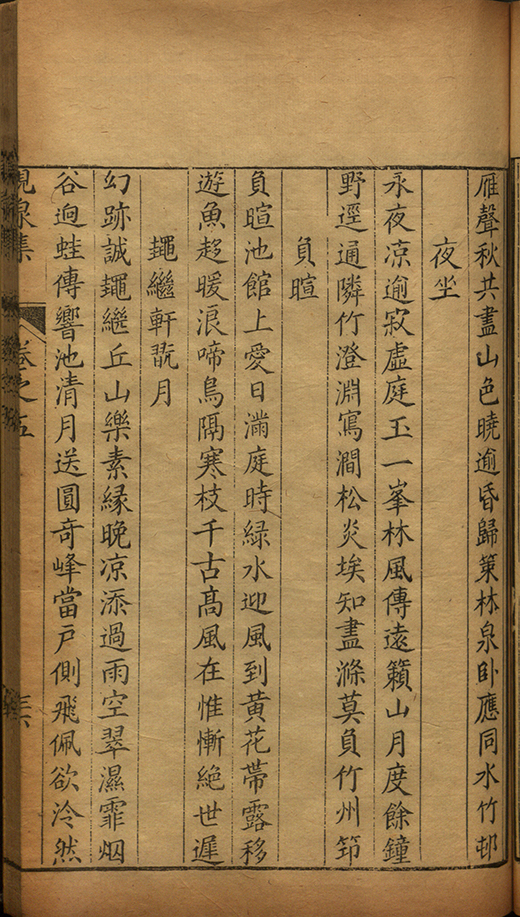 雁聲秋共盡山色曉逾昏歸策林泉卧應同水竹邨
夜坐
永夜凉逾寂虛庭玉一峯林風傳遠籟山月度餘鐘
野逕通隣竹澄淵寫澗松炎埃知盡滌莫負竹州筇
負暄
負暄池館上愛日滿庭時緑水迎風到黃花帶露移
遊魚趂暖浪啼鳥隔寒枝千古高風在惟慚絶世遲
繩繼軒翫月
幻跡誠繩繼丘山樂素縁晚凉添過雨空翠濕霏烟
谷逈蛙傳響池清月送圓奇峰當戶側飛佩欲泠然
泉集 卷之五